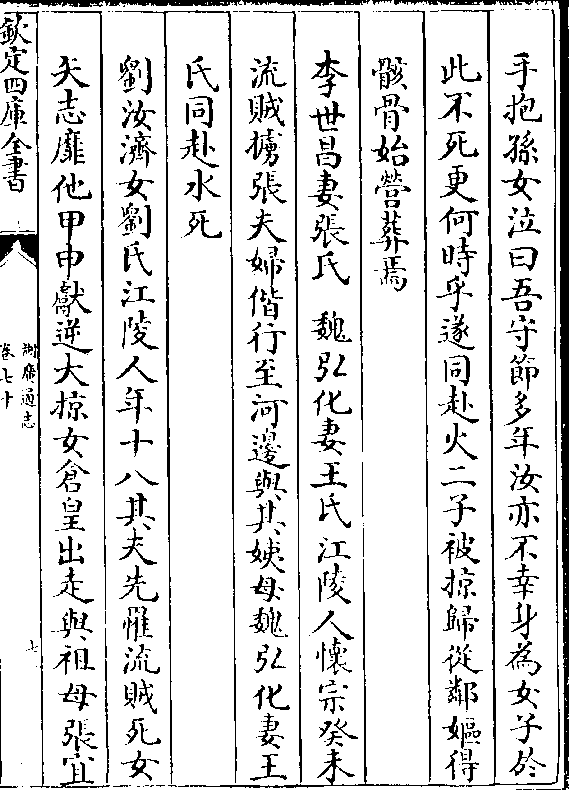 手抱孫女泣曰吾守節多年汝亦不幸身為女子於
此不死更何時乎遂同赴火二子被掠歸從鄰嫗得
骸骨始營葬焉
李世昌妻張氏 魏弘化妻王氏江陵人懷宗癸未
流賊擄張夫婦偕行至河邊與其姨母魏弘化妻王
氏同赴水死
劉汝濟女劉氏江陵人年十八其夫先罹流賊死女
矢志靡他甲申獻逆大掠女倉皇出走與祖母張宜
欽定四庫全書
湖廣通志
卷七十
七